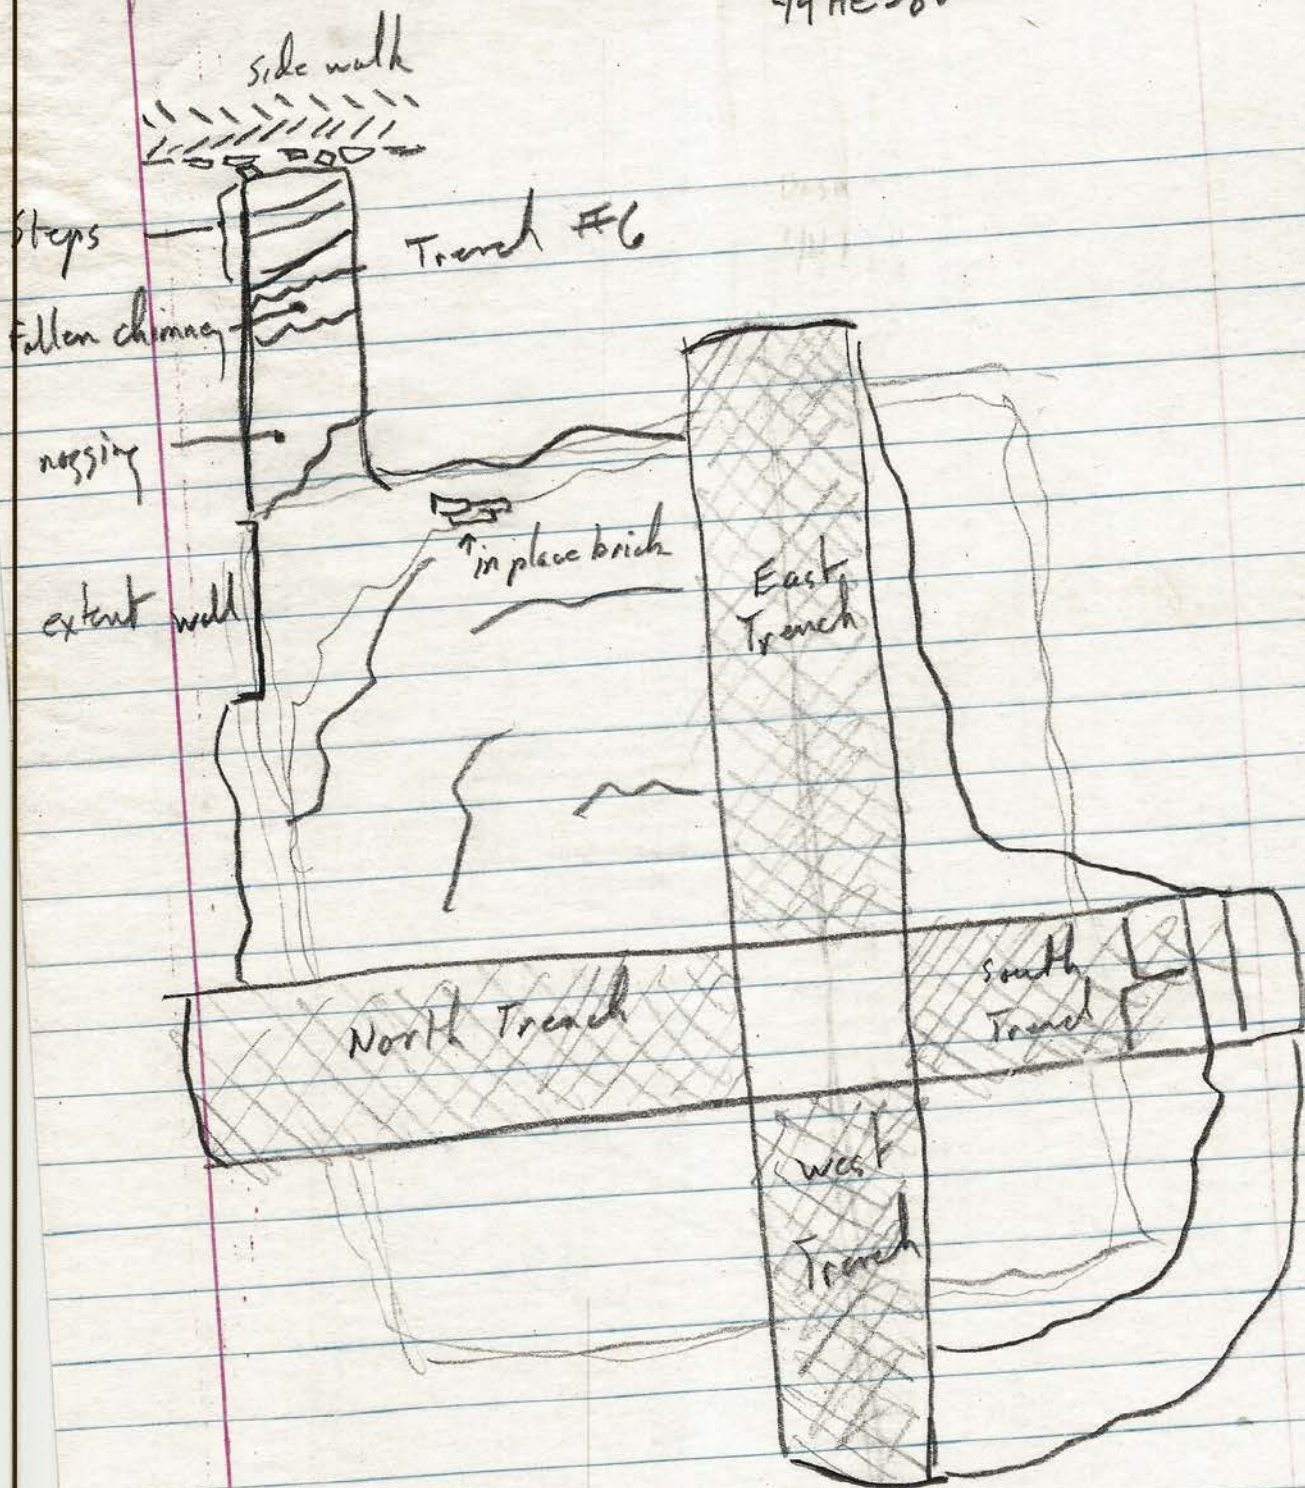 side walk
Steps
Trench #6
Fallen chimney
nogging
↑in place brick
extent wall
East
Trench
North Trench
South
Trench
west
Trench